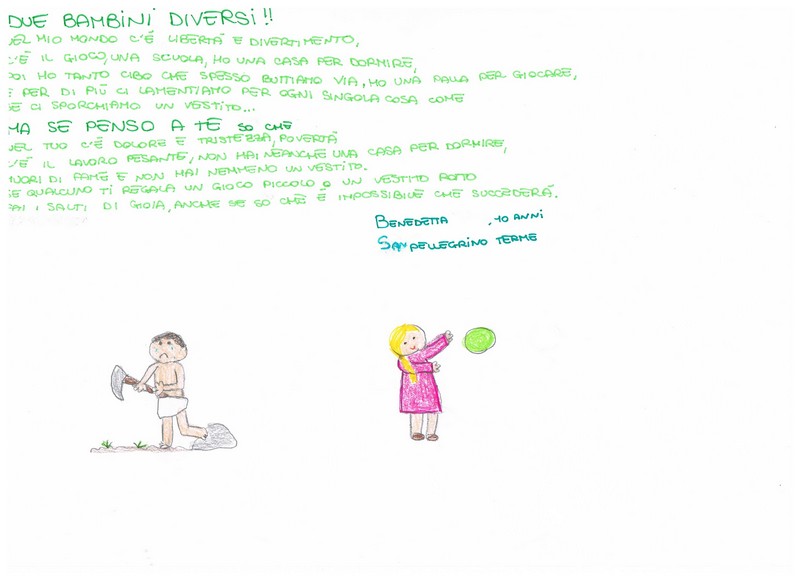 DUE BAMBINI DIVERSI!!
NEL MIO MONDO C'É LIBERTÀ E DIVERTIMENTO,
C'É IL GIOCO, UNA SCUOLA, HO UNA CASA PER DORMIRE,
POI HO TANTO CIBO CHE SPESSO BUTTIAMO VIA, HO UNA PALLA PER GIOCARE,
E PER DI PIÙ CI LAMENTIAMO PER OGNI SINGOLA COSA COME
SE CI SPORCHIAMO UN VESTITO...
MA SE PENSO A TE SO CHE
NEL TUO C'É DOLORE E TRISTEZZA, POVERTÀ
C'É IL LAVORO PESANTE, NON HAI NEANCHE UNA CASA PER DORMIRE,
MUORI DI FAME E NON HAI NEMMENO UN VESTITO.
SE QUALCUNO TI REGALA UN GIOCO PICCOLO O UN VESTITO ROTTO
FAI I SALTI DI GIOIA, ANCHE SE SO CHE É IMPOSSIBILE CHE SUCCEDERÀ.
BENEDETTA . 10 ANNI
SAN PELLEGRINO TERME